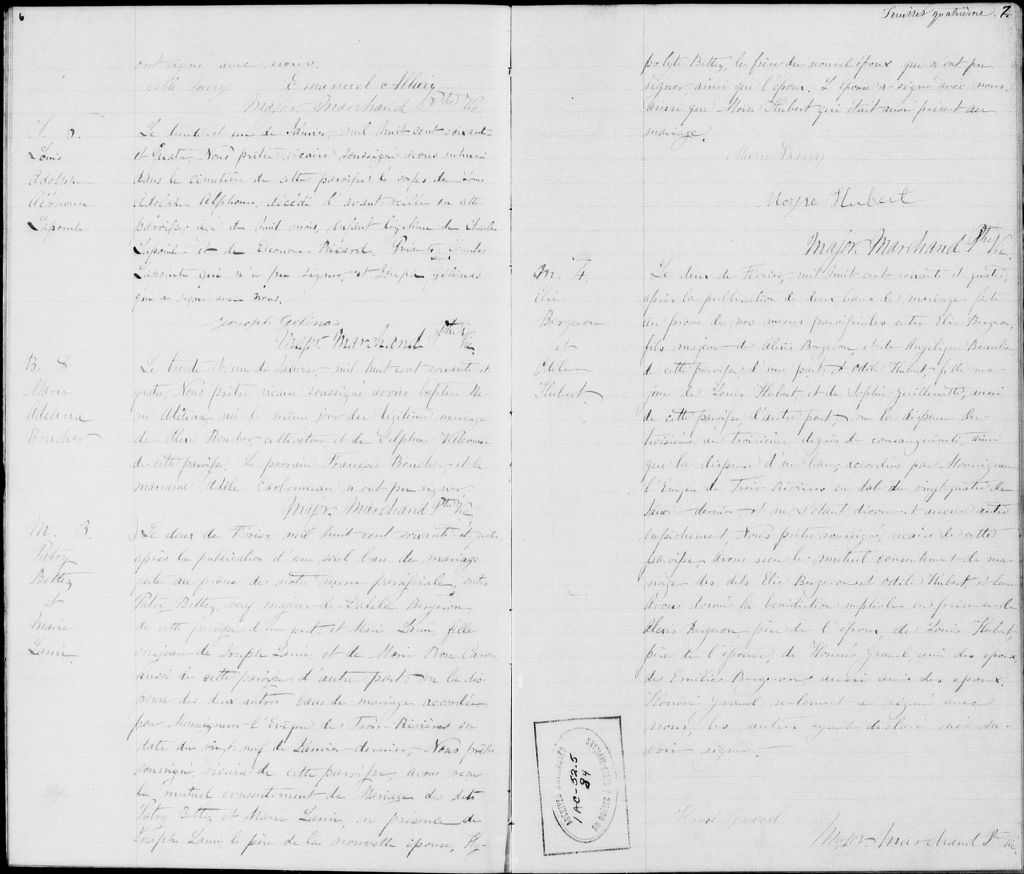 6
ont signé avec nous.
Emmanuel Allary
Major Marchand Ptre Vic
S. 5.
Louis
Adolph
Alphonse
Lapointe
Le trente et un de Janvier, mil huit cent soixante
et quatre, Nous prêtre vicaire soussigné avons inhumé
dans le cimetière de cette paroisse le corps de Louis
Adolph Alphonse, décédé l'avant-veille en cette
paroisse, âgé de huit mois, enfant légitime de Charles
Lapointe et de Ricard. Présents, Charles
Lapointe qui n'a pu signer, et Joseph Gélinas
qui a signé avec nous.
Joseph Gelinas
Major Marchand Ptre Vic
B. 8
Marie
Adelina
Boucher
Le trente et un de Janvier mil huit cent soixante et
quatre, Nous prêtre vicaire soussigné avons baptisé Ma-
rie Adelina, née le même jour du légitime mariage
de Boucher cultivateur et de Delphine Villemure
de cette paroisse. Le parrain François Boucher et la
marraine Adèle Carbonneau n'ont pu signer.
Major Marchand Ptre Vic
M. 3.
Patry
Bettez
et
Marie
Lami
Le deux de Février mil huit cent soixante et quatre
après la publication d'un seul ban de mariage
faite au prône de notre messe paroissiale, entre
Patry Bettez, veuf majeur de Bergeron
de cette paroisse d'une part; et Marie Lami fille
majeure de Joseph Lami et de Marie Rose Caron
aussi de cette paroisse d'autre part; vu la dis-
pense des deux autres bans de mariage accordée
par Monseigneur l'Evêque de Trois-Rivières en
date du vingt neuf de Janvier dernier, Nous prêtre
soussigné, vicaire de cette paroisse, avons reçu
le mutuel consentement de Mariage des dits
Patry Bettez et Marie Lami, en présence de
Joseph Lami le père de la nouvelle épouse, Hy-
Feuillet quatrième. 7.
polyte Bettez, le frère du nouvel époux qui n'ont pu
signer ainsi que l'époux. L'épouse a signé avec nous
ainsi que Moïse Hubert qui était aussi présent au
mariage.
Moyse Hubert
Major Marchand Ptre Vic.
M. 4.
Elie
Bergeron
et
Odile
Hubert
Le deux de Février, mil huit cent soixante et quatre,
après la publication de deux bans de mariage faite
au prône de nos messes paroissiales entre Elie Bergeron,
fils majeur de Alexis Bergeron et de Angélique
de cette paroisse d'une part, & Odile Hubert fille ma-
jeure de Louis Hubert, et de Sophie Guillemette, aussi
de cette paroisse d'autre part; vu la dispense du
troisième au troisième degrés de consanguinité, ainsi
que la dispense d'un ban, accordées par Monseigneur
l'Evêque de Trois-Rivières en date du vingt quatre de
Janvier dernier et ne s'étant découvert aucun autre
empêchement, Nous prêtre soussigné, vicaire de cette
paroisse avons reçu le mutuel consentement de ma-
riage des dits Elie Bergeron et Odile Hubert et leur
avons donné la bénédiction nuptiale en présence de
Alexis Bergeron père de l'époux, de Louis Hubert,
père de l'épouse, de Honoré Gravel ami des époux,
des Emilien Bergeron aussi ami des époux.
Honoré Gravel seulement a signé avec
nous, les autres ayant déclaré ne sa-
voir signer.
Honoré Gravel
Major Marchand Ptre Vic.
ARCHIVES NATIONALES
1 AC-52.5
84
DU QUÉBEC